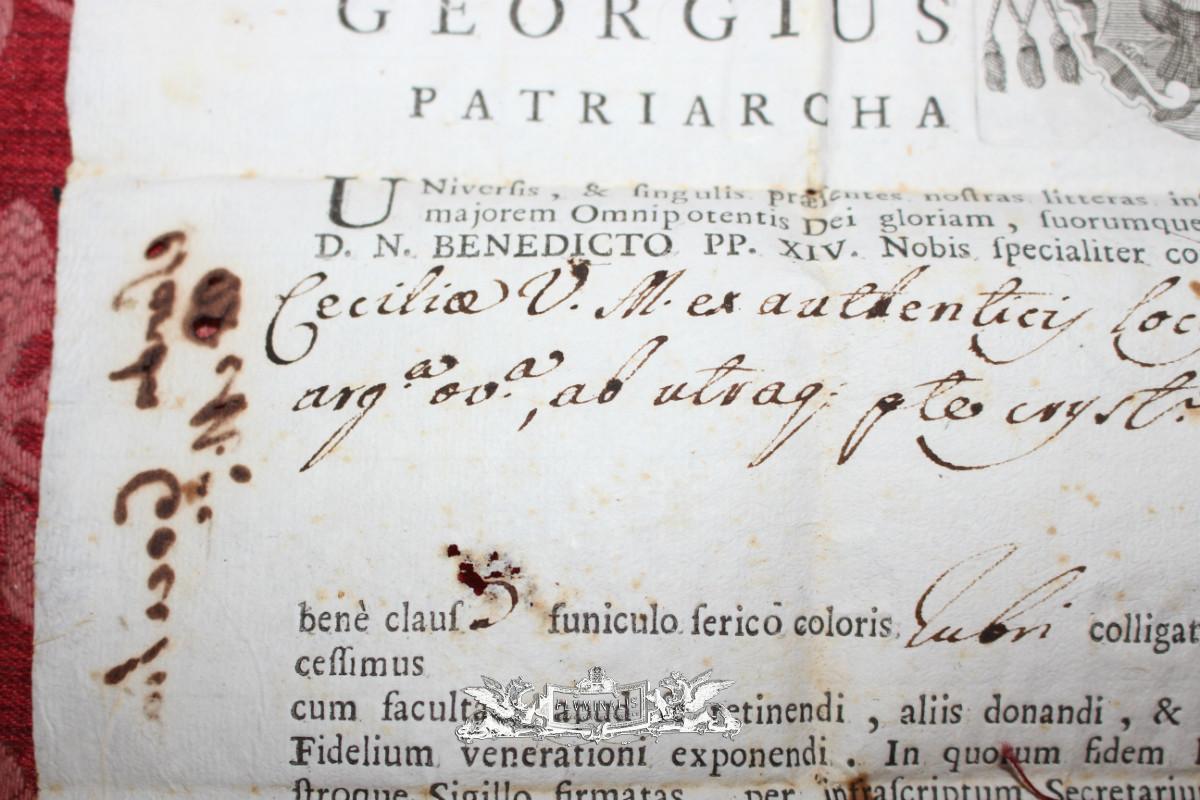 GEORGIUS
PATRIARCHA
UNiversis, & singulis præsentes nostras litteras in
majorem Omnipotentis Dei gloriam, suorumque
D. N. BENEDICTO PP. XIV. Nobis specialiter co
Ceciliæ V. M. ex authenticis loc
argᵃ ovᵃ, ab utraq; pte cryst.
benè claus funiculo serico coloris rubri colligat
cessimus
cum faculta apud retinendi, aliis donandi, &
Fidelium venerationi exponendi. In quorum fidem
stroque Sigillo firmatas per infrascriptum Secretariu